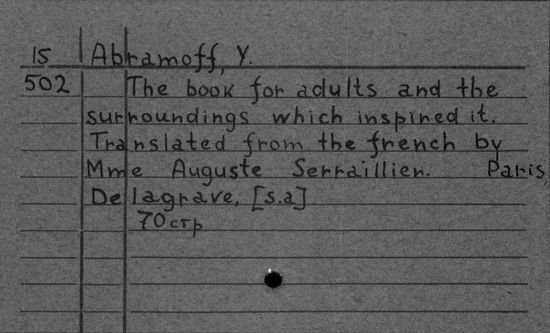 15 Abramoff, Y.
502 The book for adults and the
surroundings which inspired it.
Translated from the french by
Mme Auguste Serraillier. Paris,
Delagrave, [s.a]
70 стр